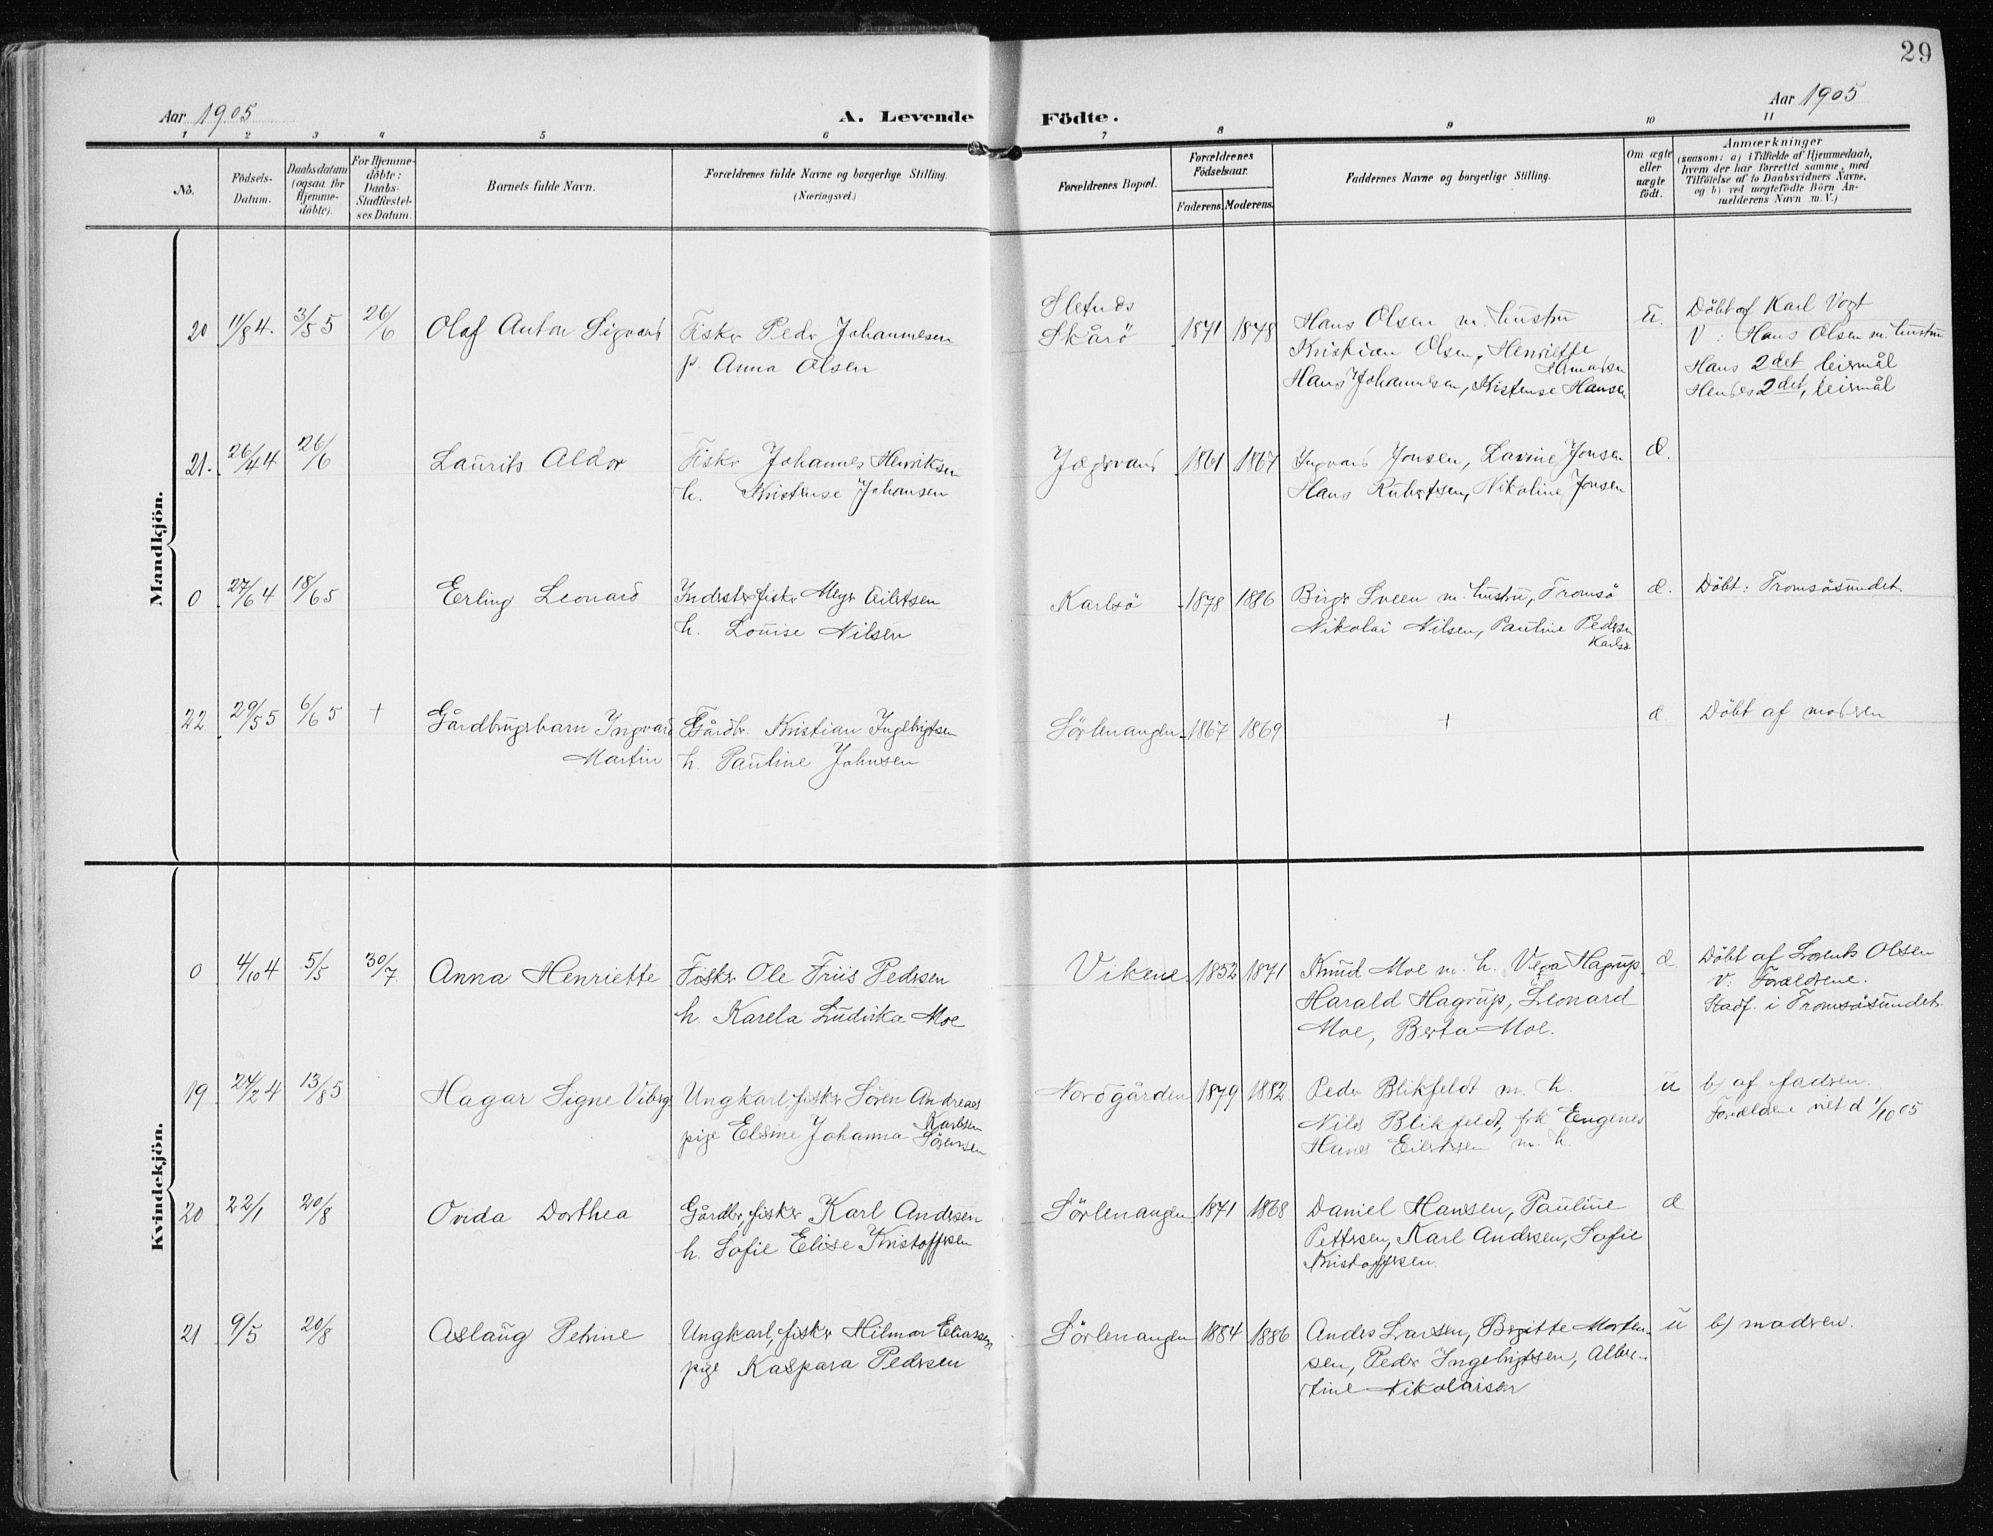 29
Aar 1905
A. Levende Födte.
Aar 1905
1 2 3 4 5 6 7 8 9 10 11
No.
Födsels-Datum.
Daabsdatum (ogsaa for Hjemme-döbte).
For Hjemme-döbte: Daabs-Stadfæstel-ses Datum.
Barnets fulde Navn.
Forældrenes fulde Navne og borgerlige Stilling.
(Næringsvei.)
Forældrenes Bopæl.
Forældrenes Födselsaar.
Faderens. Moderens.
Faddernes Navne og borgerlige Stilling.
Om ægte eller uægte födt.
Anmærkninger
(saasom: a) i Tilfælde af Hjemmedaab,
hvem der har forrettet samme, med
Tilföielse af to Daabsvidners Navne,
og b) ved uægtefödte Börn An-
melderens Navn m.V.)
Mandkjön.
20 11/8 4. 3/5 5 26/6 Olaf Anton Sigvard Fisker Peder Johannesen Skårö 1871 1848 Hans Olsen m. hustru u. Döbt af Karl Vogt
p. Anna Olsen Kristian Olsen, Henriette V: Hans Olsen m. hustru
Hans Johannesen, Kristense Hansen Hans 2det leiermål
Hendes 2det, leiermål
21. 26/4 4 26/6 Laurits Aldor Fisker Johannes Henriksen Jægervand 1861 1867 Ingvard Jonsen, Lavine Jonsen d.
h. Kristense Johansen Hans Rubertsen, Nikoline Jonsen
0 27/6 4 18/6 5 Erling Leonard Inderster fisker Meyer Eilertsen Karlsö 1878 1886 Birger Sveen m. hustru, Tromsö d. Döbt: Tromsösundet
h. Louise Nilsen Nikolai Nilsen, Pauline Pedersen
Karlsö
22 29/5 5 6/6 5 + Gårdbrugsbarn Ingvard Gårdbr. Kristian Ingebrigtsen Sörlenangen 1867 1869 + d Döbt af moderen
Martin h. Pauline Johnsen
Kvindekjön.
0 4/10 4 5/5 30/7 Anna Henriette Fisker Ole Friis Pedersen Vikene 1852 1871 Knud Moe m. h. Vera Hagrup. d Döbt af Lorents Olsen
h. Karela Ludvika Moe Harald Hagrup, Leonard V: Forældrene.
Moe, Berta Moe. Stadf. i Tromsösundet.
19 24/2 4 13/8 5 Hagar Signe Viberg Ungkarl, fisker Sören Andreas Nordgården 1879 1882 Peder Blikfeldt m. h. u b) af faderen.
Karlsen
pige Elsine Johanna Sörensen Nils Blikfeldt, frk Eugenes Forældrene viet d 1/10 05
Hans Eilertsen m. h.
20 22/1 20/8 Ovida Dorthea Gårdbr, fisker Karl Andersen Sörlenangen 1871 1868 Daniel Hansen, Pauline d
h. Sofie Elise Kristoffersen Pettersen, Karl Andersen, Sofie
Kristoffersen.
21 9/5 20/8 Aslaug Petrine Ungkarl, fisker Hilmar Eliassen Sörlenangen 1884 1886 Anders Larsen, Birgitte Morten- u b) moderen.
pige Kaspara Pedersen sen, Peder Ingebrigtsen, Alber-
tine Nikolaisen